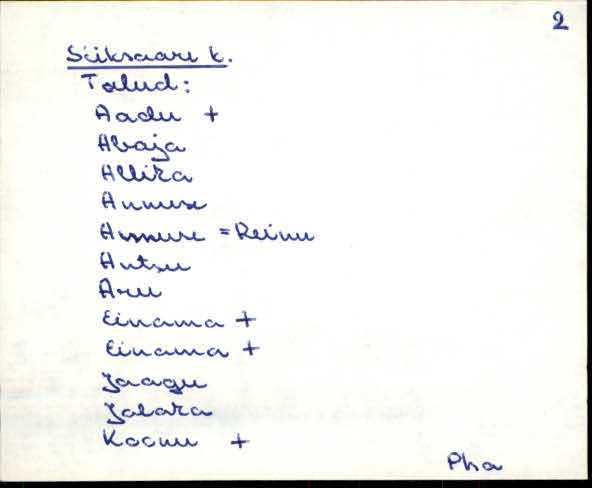 2
Siiksaare k.
Talud:
Aadu +
Abaja
Allika
Annuse
Annuse = Reinu
Antsu
Aru
Einama +
Einama +
Jaagu
Jalaka
Koonu +
Pha